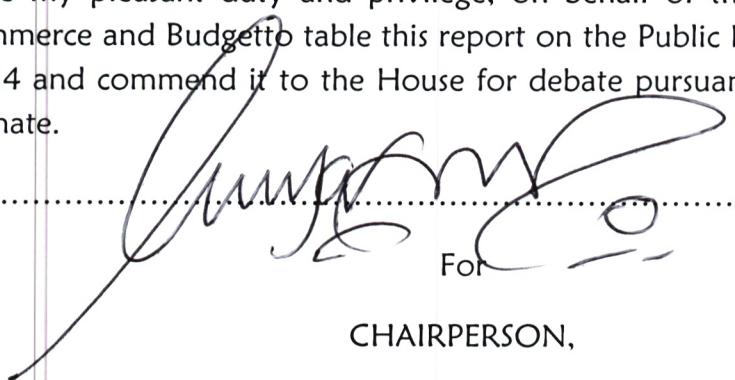 my pleasant duty and privilege, on behalf of
mmerce and Budgetto table this report on the Public
4 and commend it to the House for debate pursuan
nate.
For
CHAIRPERSON,